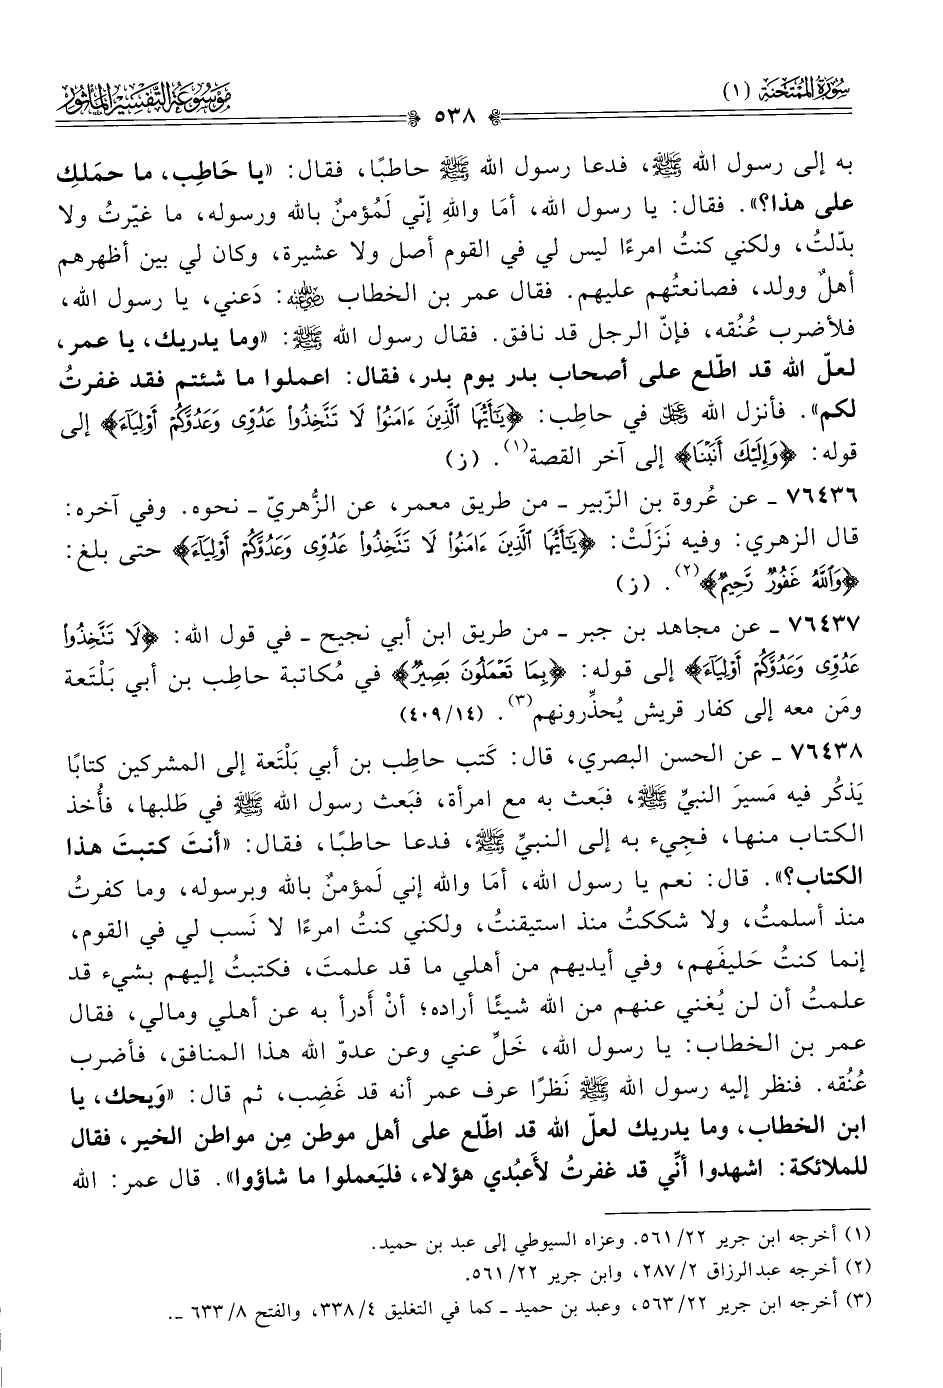 سُورَةُ المُمْتَحنَة (١)
٥٣٨
مَوْسُوعَة التَّفْسِيرِ المَأْثُور
به إلى رسول الله ﷺ، فدعا رسول الله ﷺ حاطبًا، فقال: «يا حَاطِب، ما حمَلك
على هذا؟». فقال: يا رسول الله، أمَا واللهِ إنّي لَمُؤمنٌ بالله ورسوله، ما غيّرتُ ولا
بدّلتُ، ولكني كنتُ امرءًا ليس لي في القوم أصل ولا عشيرة، وكان لي بين أظهرهم
أهلٌ وولد، فصانعتُهم عليهم. فقال عمر بن الخطاب رضي الله عنه: دَعني، يا رسول الله،
فلأضرب عُنُقه، فإنّ الرجل قد نافق. فقال رسول الله ﷺ: «وما يدريك، يا عمر،
لعلّ الله قد اطّلع على أصحاب بدر يوم بدر، فقال: اعملوا ما شئتم فقد غفرتُ
لكم». فأنزل الله عز وجل في حاطِب: ﴿يَٰٓأَيُّهَا ٱلَّذِينَ ءَامَنُوا۟ لَا تَتَّخِذُوا۟ عَدُوِّى وَعَدُوَّكُمْ أَوْلِيَآءَ﴾ إلى
قوله: ﴿وَإِلَيْكَ أَنَبْنَا﴾ إلى آخر القصة(١). (ز)
٧٦٤٣٦ ـ عن عُروة بن الزّبير ـ من طريق معمر، عن الزُّهريّ ـ نحوه. وفي آخره:
قال الزهري: وفيه نَزَلَتْ: ﴿يَٰٓأَيُّهَا ٱلَّذِينَ ءَامَنُوا۟ لَا تَتَّخِذُوا۟ عَدُوِّى وَعَدُوَّكُمْ أَوْلِيَآءَ﴾ حتى بلغ:
﴿وَٱللَّهُ غَفُورٌ رَّحِيمٌ﴾(٢). (ز)
٧٦٤٣٧ ـ عن مجاهد بن جبر ـ من طريق ابن أبي نجيح ـ في قول الله: ﴿لَا تَتَّخِذُوا۟
عَدُوِّى وَعَدُوَّكُمْ أَوْلِيَآءَ﴾ إلى قوله: ﴿بِمَا تَعْمَلُونَ بَصِيرٌ﴾ في مُكاتبة حاطِب بن أبي بَلْتَعة
ومَن معه إلى كفار قريش يُحذِّرونهم(٣). (١٤/٤٠٩)
٧٦٤٣٨ ـ عن الحسن البصري، قال: كَتب حاطِب بن أبي بَلْتَعة إلى المشركين كتابًا
يَذكُر فيه مَسيرَ النبيِّ ﷺ، فبَعث به مع امرأة، فبَعث رسول الله ﷺ في طَلبها، فأُخذ
الكتاب منها، فجِيء به إلى النبيِّ ﷺ، فدعا حاطبًا، فقال: «أنتَ كتبتَ هذا
الكتاب؟». قال: نعم يا رسول الله، أمَا والله إني لَمؤمنٌ بالله وبرسوله، وما كفرتُ
منذ أسلمتُ، ولا شككتُ منذ استيقنتُ، ولكني كنتُ امرءًا لا نَسب لي في القوم،
إنما كنتُ حَليفَهم، وفي أيديهم من أهلي ما قد علمتَ، فكتبتُ إليهم بشيء قد
علمتُ أن لن يُغني عنهم من الله شيئًا أراده؛ أنْ أَدرأ به عن أهلي ومالي، فقال
عمر بن الخطاب: يا رسول الله، خَلِّ عني وعن عدوّ الله هذا المنافق، فأضرب
عُنُقه. فنظر إليه رسول الله ﷺ نَظرًا عرف عمر أنه قد غَضِب، ثم قال: «وَيحك، يا
ابن الخطاب، وما يدريك لعلّ الله قد اطّلع على أهل موطن مِن مواطن الخير، فقال
للملائكة: اشهدوا أنِّي قد غفرتُ لأَعبُدي هؤلاء، فليَعملوا ما شاؤوا». قال عمر: الله
(١) أخرجه ابن جرير ٢٢/ ٥٦١. وعزاه السيوطي إلى عبد بن حميد.
(٢) أخرجه عبدالرزاق ٢/ ٢٨٧، وابن جرير ٢٢/ ٥٦١.
(٣) أخرجه ابن جرير ٢٢/ ٥٦٣، وعبد بن حميد ـ كما في التغليق ٤/ ٣٣٨، والفتح ٨/ ٦٣٣ ـ.